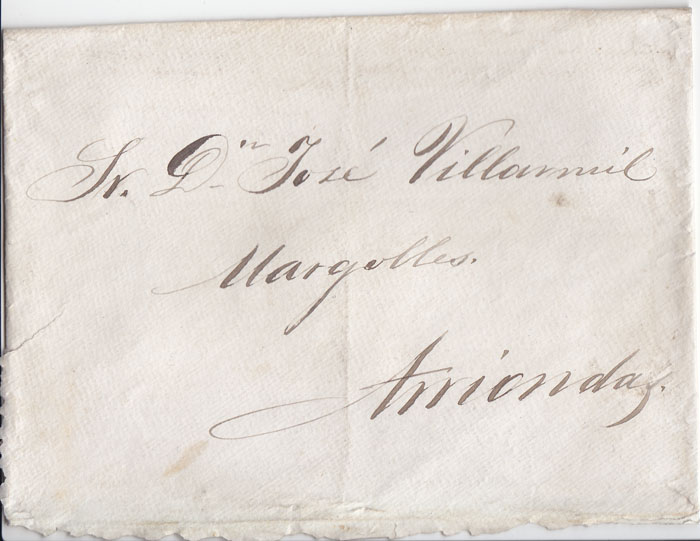 Sr. Dn José Villarmil
Margolles.
Arriondas.